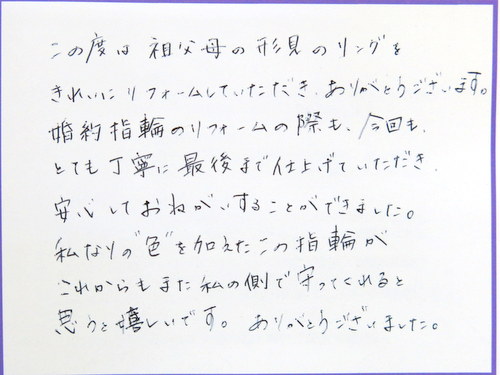 この度は 祖父母の形見のリングを
きれいにリフォームしていただき、ありがとうございます。
婚約指輪のリフォームの際も、今回も、
とても丁寧に最後まで仕上げていただき、
安心しておねがいすることができました。
私なりの"色"を加えたこの指輪が
これからもまた私の側で守ってくれると
思うと嬉しいです。 ありがとうございました。